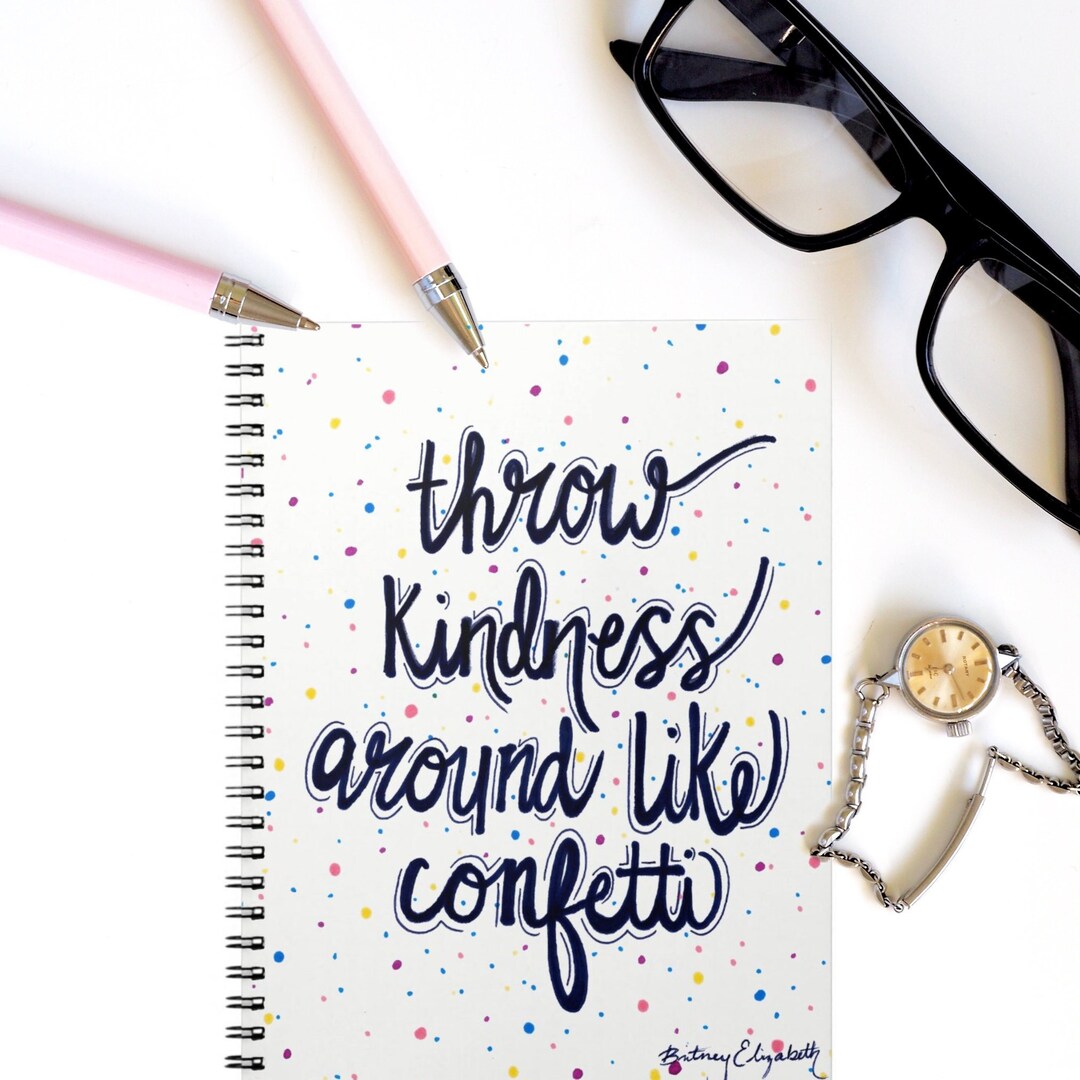 throw
kindness
around like
confetti
Britney Elizabeth